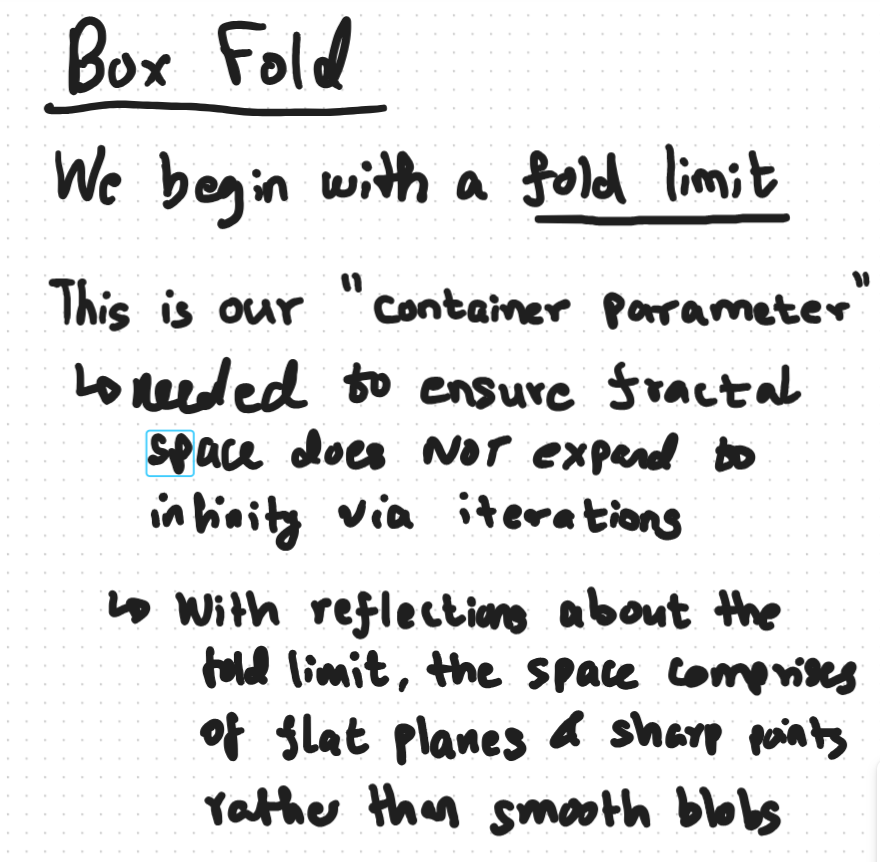 Box Fold
We begin with a fold limit
This is our "container parameter"
↳ needed to ensure fractal
space does NOT expand to
infinity via iterations
↳ With reflections about the
fold limit, the space comprises
of flat planes & sharp points
rather than smooth blobs